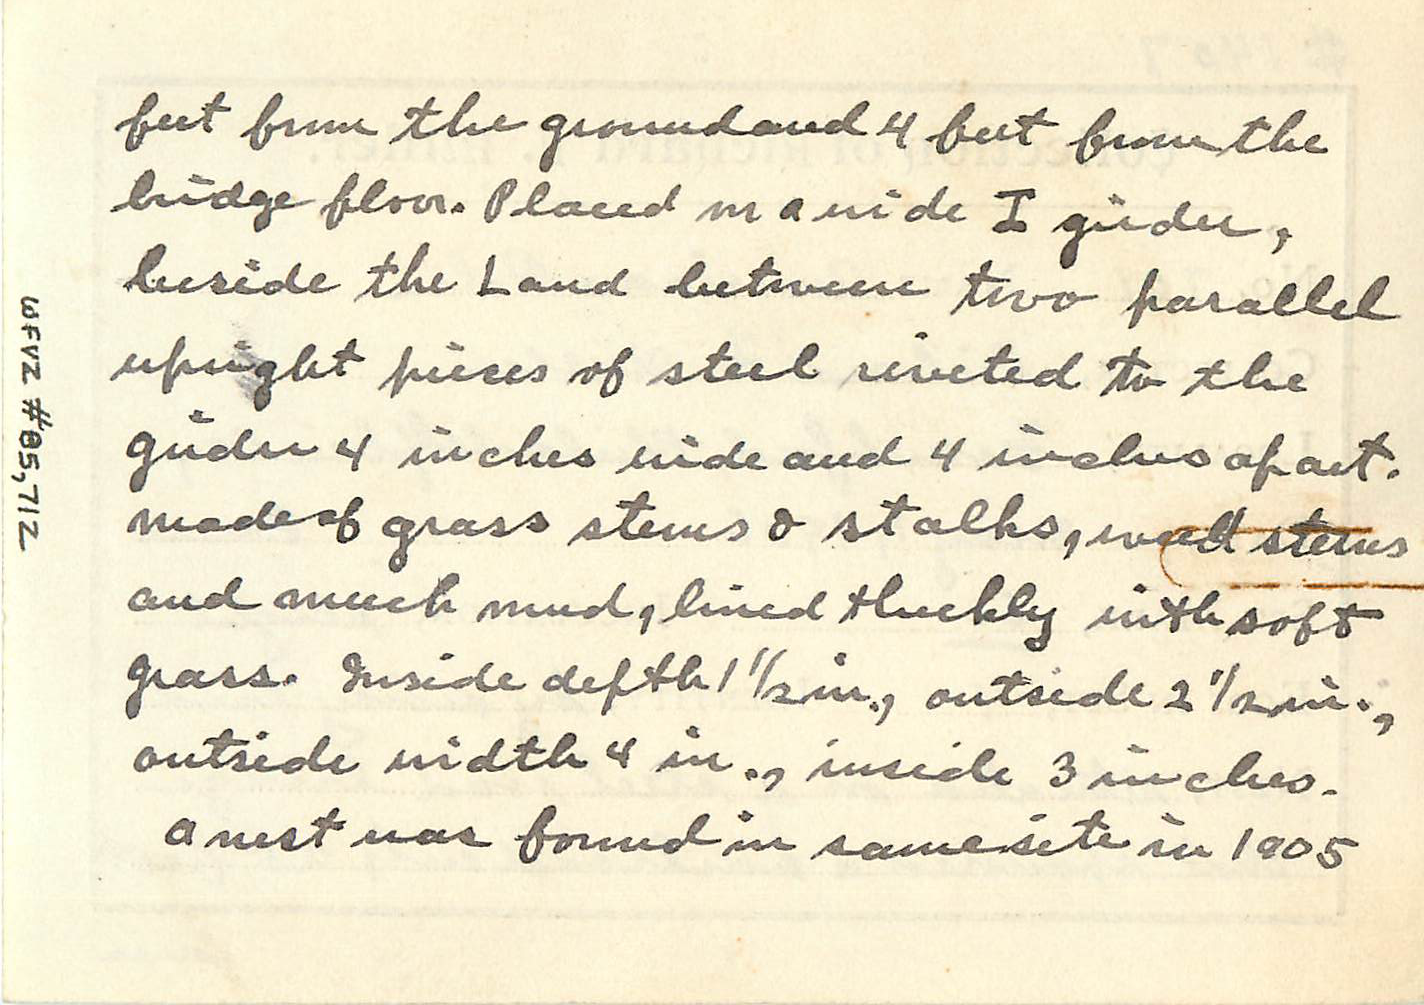 feet from the ground and 4 feet from the
bridge floor. Placed on a wide I girder,
beside the L and between two parallel
upright pieces of steel riveted to the
girder 4 inches wide and 4 inches apart.
made of grass stems & stalks, weed stems
and much mud, lined thickly with soft
grass. Inside depth 1 1/2 in., outside 2 1/2 in.,
outside width 4 in., inside 3 inches.
a nest was found in same site in 1905
WFVZ #85,712